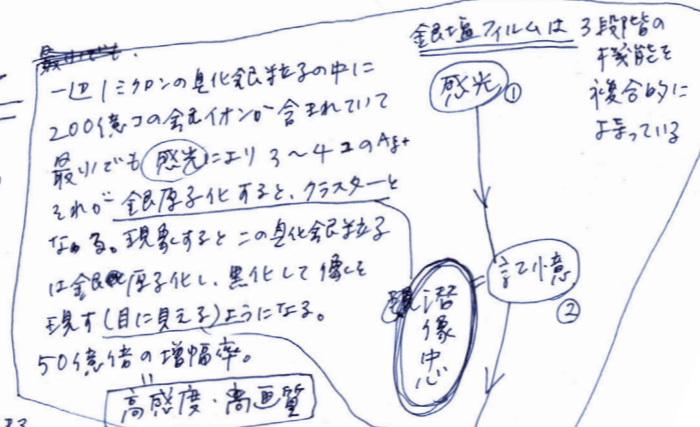 一辺1ミクロンの臭化銀粒子の中に
200億コの銀イオンが含まれていて
最小でも感光により3〜4コのAg+
それが銀原子化すると、クラスターと
なる。現象するとこの臭化銀粒子
は銀原子化し、黒化して像を
現す(目に見える)ようになる。
50億倍の増幅率。
高感度・高画質
銀塩フィルムは
3段階の
機能を
複合的に
よっている
感光
①
記憶
②
潜像中心